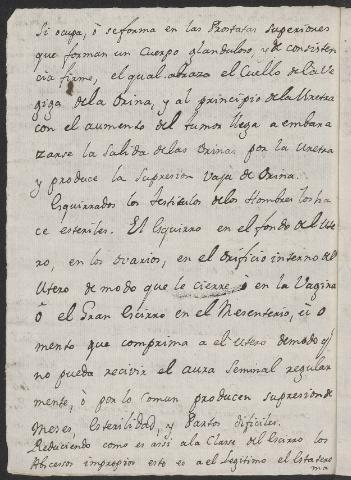 Si ocupa, ò se forma en las Prostatas superiores
que forman un Cuerpo glanduloso, y de consisten
cia firme, el qual abraza el Cuello de la Ve
giga de la Orina, y al principio de la Uretra
con el aumento del tumor llega a embara
zarse la salida de las Orinas por la Uretra
y produce la supresion vaja de Orina.
Esquirrados los testiculos de los Hombres los ha
ce esteriles. El Esquirro en el fondo del Ute
ro, en los ovarios, en el Orificio interno del
Utero de modo que le cierre ò en la Vagina
ò el Gran Escirro en el Mesenterio, ù o
mento que comprima a el Utero de modo q.
no pueda recivir el aura seminal regular
mente, ò por lo comun producen supresion de
Meses, Esterilidad, y Partos dificiles.
Reduciendo como es assi a la Classe del Escirro los
Abscesos impropios esto es a el legitimo el Esteato
ma